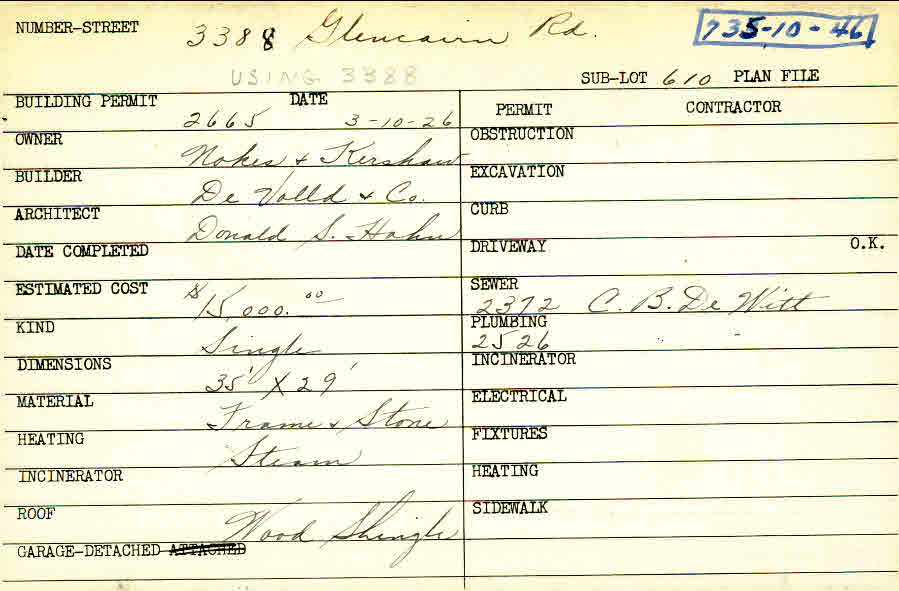 NUMBER-STREET 3388 Glencairn Rd. 735-10-46
USING 3388
SUB-LOT 610 PLAN FILE
BUILDING PERMIT 2665 DATE 3-10-26
PERMIT CONTRACTOR
OWNER Nokes & Kershaw
OBSTRUCTION
BUILDER De Volld & Co.
EXCAVATION
ARCHITECT Donald S. Hahn
CURB
DATE COMPLETED
DRIVEWAY O.K.
ESTIMATED COST $15,000.00
SEWER 2372 C. B. De Witt
KIND Single
PLUMBING 2526
DIMENSIONS 35' X 29'
INCINERATOR
MATERIAL Frame & Stone
ELECTRICAL
HEATING Steam
FIXTURES
INCINERATOR
HEATING
ROOF Wood Shingle
SIDEWALK
GARAGE-DETACHED ATTACHED